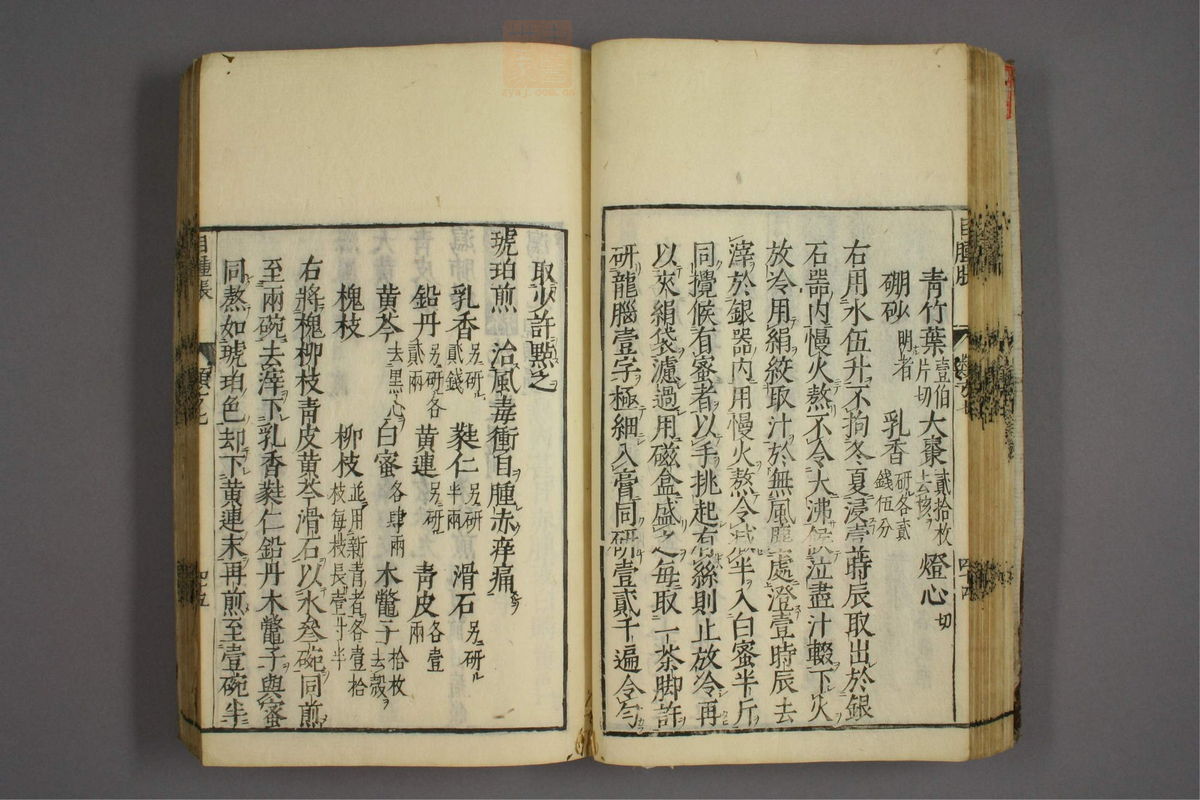 青竹葉壹伯片切 大棗貳拾枚去核 燈心切
硼砂明者 乳香研各貳錢伍分
右用水伍升不拘冬夏浸壹時辰取出於銀
石器内慢火熬不令大沸候泣盡汁輟下火
放冷用絹絞取汁於無風塵處澄壹時辰去
滓於銀器内用慢火熬令減半入白蜜半斤
同攪候有蜜者以手挑起有絲則止放冷再
以夾絹袋濾過用磁盒盛之每取一茶脚許
研龍腦壹字極細入膏同研壹貳千遍令勻
取少許點之
琥珀煎 治風毒衝目腫赤痒痛
乳香另研貳錢 蕤仁另研半兩 滑石另研
鉛丹另研各貳兩 黄連另研 青皮各壹兩
黄芩去黒心 白蜜各肆兩 木鼈子拾枚去殻
槐枝 柳枝並用新青者各壹拾枝每枝長壹寸半
右將槐柳枝青皮黄芩滑石以水叄碗同煎
至兩碗去滓下乳香蕤仁鉛丹木鼈子與蜜
同熬如琥珀色却下黄連末再煎至壹碗半
目腫脹
四十五